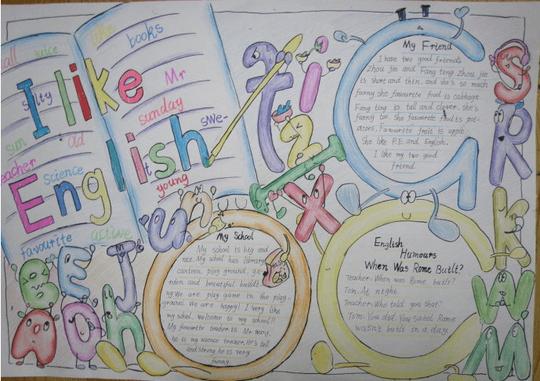 I like
English
all
juice
like
books
salty
Mr
sunday
sun
ad
swe-
teacher
science
it
young
favourite
active
My Friend
I have two good friends
Zhou Jie and Fang ting Zhou Jie
is short and thin. and she's so much
funny she favourite food is cabbage.
Fang ting is tall and clever. she's
funny too She favourite food is po-
atoes. Favourite fruit is apple
She like P.E and English.
I like my two good
friend.
My School
My school is big and
nice. My school has library
canteen play ground, ga-
rden and beautiful build
ng We are play game in the play
ground. We are happy! I very like
my school. Welcome to my school!!
My favourite teacher is Mr
he is my science teacher. He's tall
and strong he is very
funny
English
Humours
When Was Rome Built?
Teacher: When was Rome built?
Tom: At night.
Teacher: Who told you that?
Tom: You did. You said Rome
wasn't built in a day.